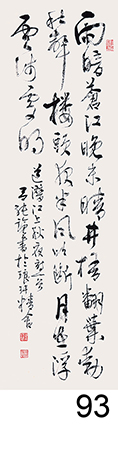 雨暗蒼江晚未晴井梧翻葉動
秋聲樓頭夜半風吹斷月在浮
雲淺處明
道潛江上秋夜
書於精舍
93